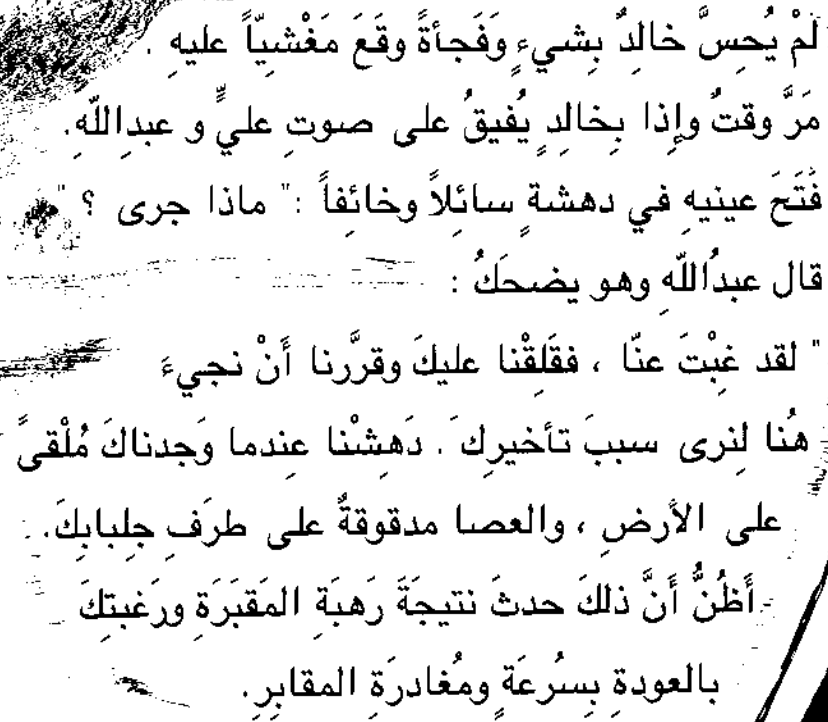 لَمْ يُحِسَّ خالدٌ بِشيءٍ وَفَجأةً وقَعَ مَغْشيّاً عليهِ .
مَرَّ وقتٌ وإذا بِخالدٍ يُفيقُ على صوتِ عليٍّ و عبدِاللّهِ.
فَتَحَ عينيهِ في دهشةٍ سائِلاً وخائِفاً :" ماذا جرى ؟ "
قال عبدُاللّهِ وهو يضحَكُ :
" لقد غِبْتَ عنّا ، فقَلِقْنا عليكَ وقرَّرنا أَنْ نجيءَ
هُنا لِنرى سببَ تأخيرِكَ . دَهِشْنا عِندما وَجدناكَ مُلْقىً
على الأرضِ ، والعصا مدقوقةٌ على طرَفِ جِلبابِكَ.
أَظُنُّ أَنَّ ذلكَ حدثَ نتيجَةَ رَهبَةِ المَقبَرَةِ ورَغبتِكَ
بالعودةِ بِسُرعَةٍ ومُغادرَةِ المقابِرِ.